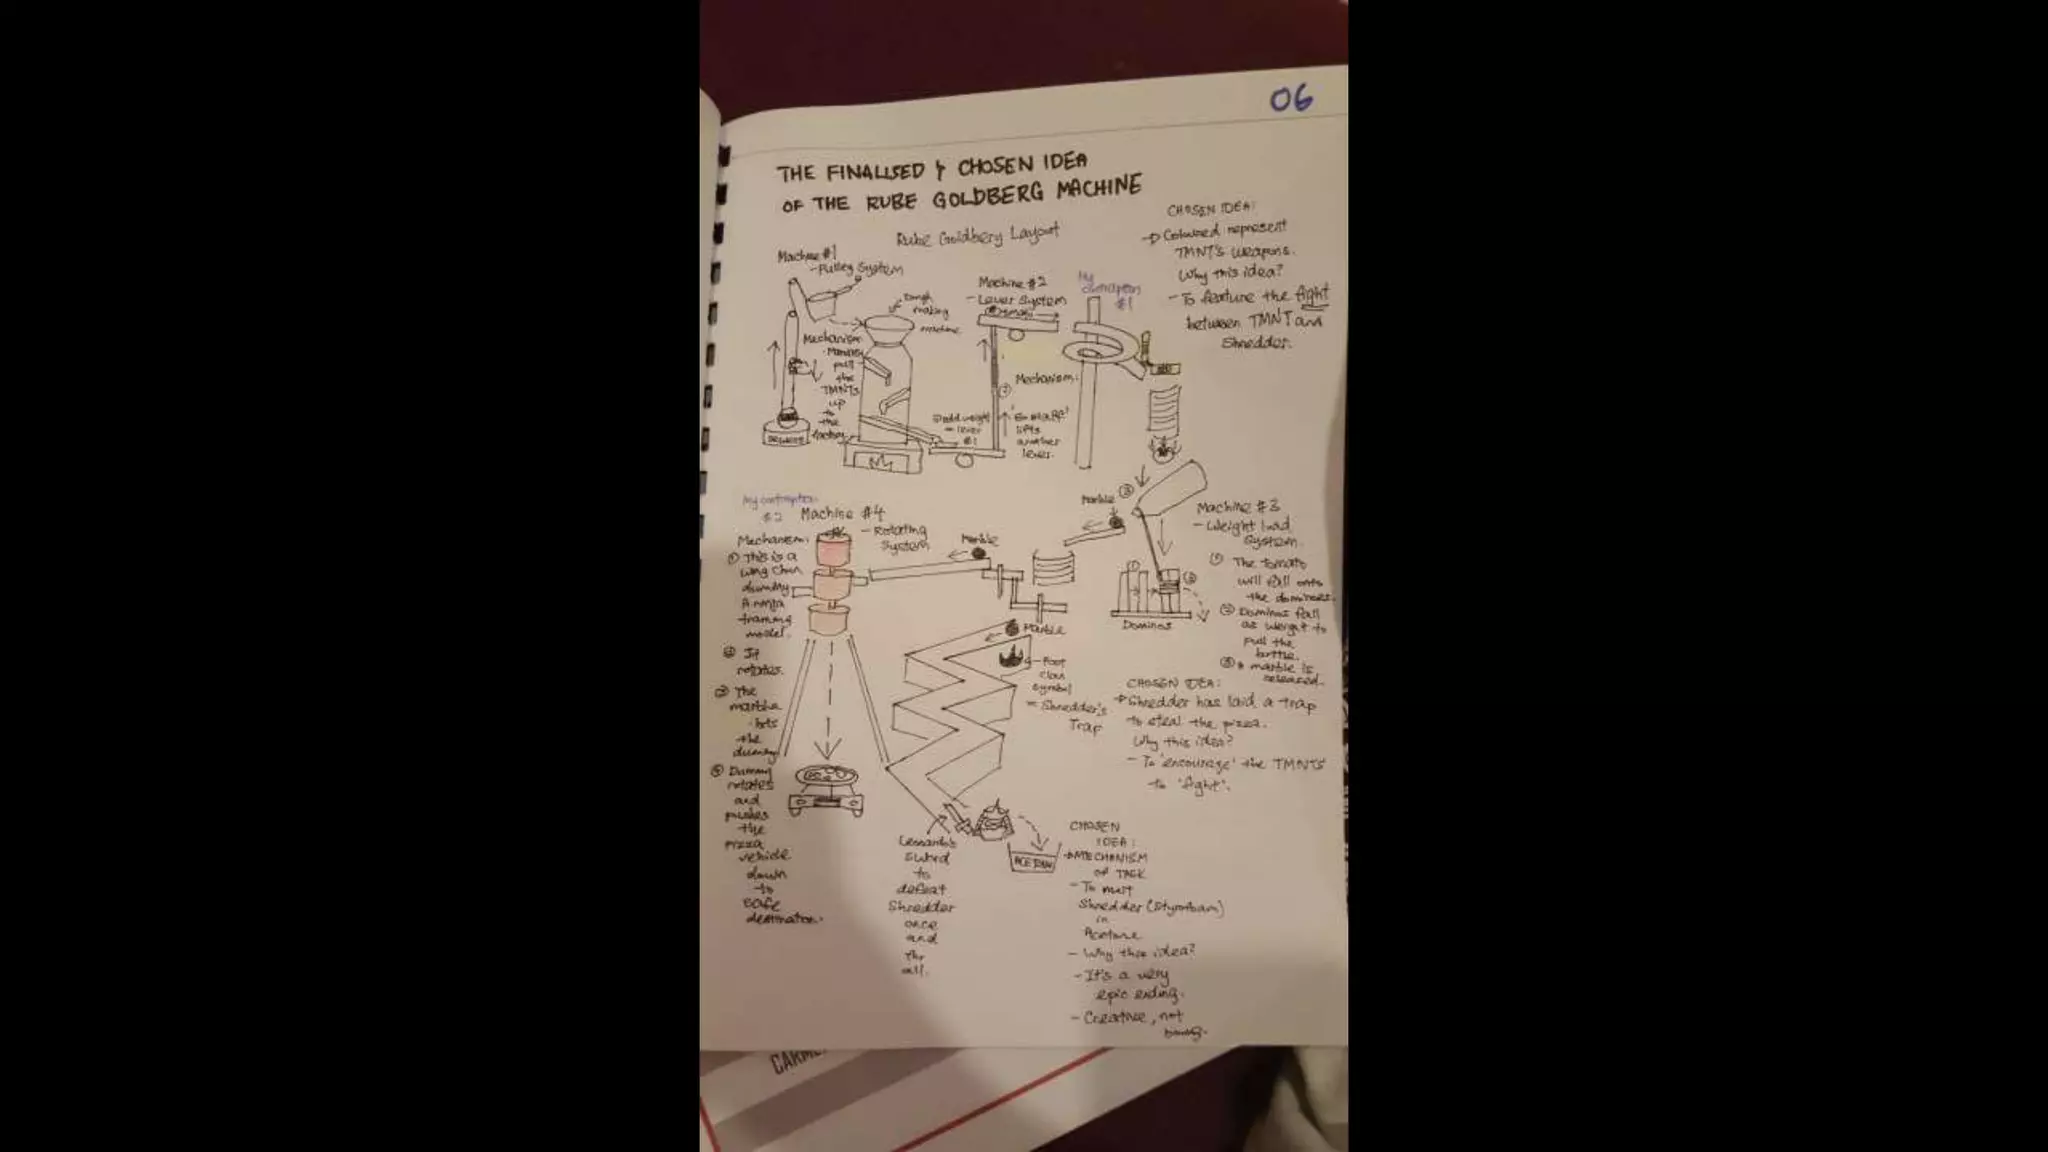 06
THE FINALISED & CHOSEN IDEA
OF THE RUBE GOLDBERG MACHINE
Rube Goldberg Layout
CHOSEN IDEA:
represent
TMNT'S weapons.
Why this idea?
- To feature the fight
between TMNT and
Shredder.
Machine #1
- Pulley System
Dough
making
machine
Mechanism
pull
the
TMNTs
up
to
the
factory
Machine #2
- Lever System
Mechanism:
lifts
another
lever.
lever
#1
My
contraption
#1
Marble
③
Machine #3
- Weight load
System.
① The tomato
will fall onto
the dominoes.
② Dominos fall
as weight to
pull the
bottle.
③ A marble is
released.
①
②
Dominos
My contraption
#2
Machine #4
- Rotating
System
Mechanism:
① This is a
Wing Chun
dummy
A ninja
training
model.
② It
rotates.
③ The
marble
hits
the
dummy
④ Dummy
rotates
and
pushes
the
pizza
vehicle
down
to
safe
destination.
Marble
Marble
Foot
clan
symbol
= Shredder's
Trap
CHOSEN IDEA:
→ Shredder has laid a trap
to steal the pizza.
Why this idea?
- To 'encourage' the TMNTS
to 'fight'.
Leonardo's
sword
to
defeat
Shredder
once
and
for
all.
ACETONE
CHOSEN
IDEA:
→ MECHANISM
OF TASK
- To melt
Shredder (Styrofoam)
in
Acetone
- Why this idea?
- It's a very
epic ending.
- Creative, not
boring.